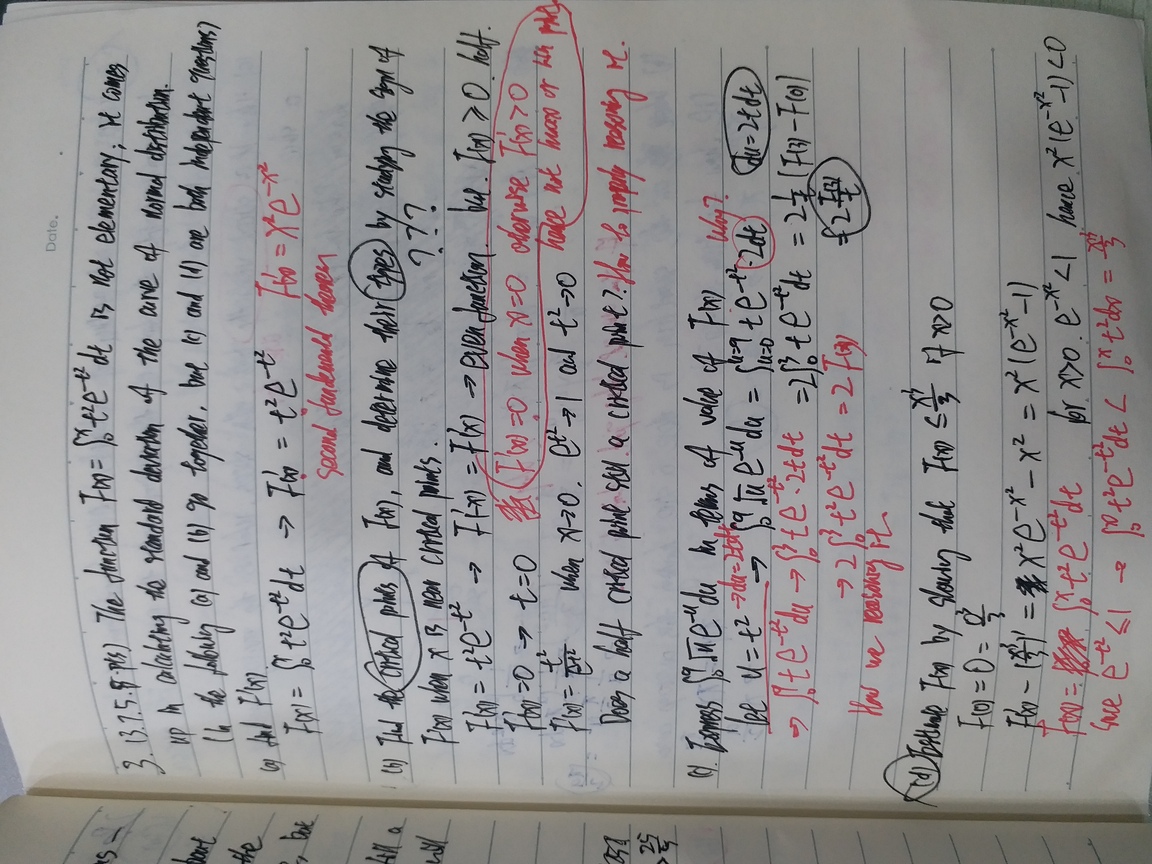 Date.
3. (3.7.5.8 pts) The function F(x) = ∫₀ˣ t²e^{-t²} dt is not elementary; it comes
up in calculating the standard deviation of the curve of normal distribution.
(In the following (a) and (b) go together, but (c) and (d) are both independent questions)
(a) find F'(x).
F(x) = ∫₀ˣ t²e^{-t²}dt → F'(x) = t²e^{-t²} F'(x) = x²e^{-x²}
second fundamental theorem
(b) Find the critical points of F(x), and determine their types by studying the sign of
F'(x) when x is near critical points. ???
F'(x) = t²e^{-t²} → F'(-x) = F'(x) → even function. but. F'(x) ≥ 0. half.
F'(x) = 0 → t=0 F'(x)=0 when x=0 otherwise F'(x)>0
F'(x) = t²/e^{t²} when x→0. e^{t²}→1 and t²→0 hence not max or min point
Does a half critical point still a critical point? How to properly reasoning it.
(c). Express ∫₀⁹ √u e^{-u} du in terms of value of F(x) why?
let u = t² → du=2tdt → ∫₀⁹ √u e^{-u} du = ∫_{u=0}^{u=9} t e^{-t²}·2dt du=2tdt
→ ∫₀⁹ t e^{-t²} du → ∫₀³ t e^{-t²}·2tdt = 2∫₀³ t e^{-t²}dt = 2 1/t [F(3) - F(0)]
→ 2∫₀³ t²e^{-t²}dt = 2F(3) = 2 F(3)/t
How we reasoning it.
(d) Estimate F(x) by showing that F(x) ≤ x³/3 if x>0
F(0) = 0 = 0³/3
F'(x) - (x³/3)' = x²e^{-x²} - x² = x²(e^{-x²}-1)
F(x) = ∫₀ˣ t²e^{-t²}dt for x>0. e^{-x²}<1 hence x²(e^{-x²}-1)<0
since e^{-t²} ≤ 1 → ∫₀ˣ t²e^{-t²}dt < ∫₀ˣ t²dx = x³/3